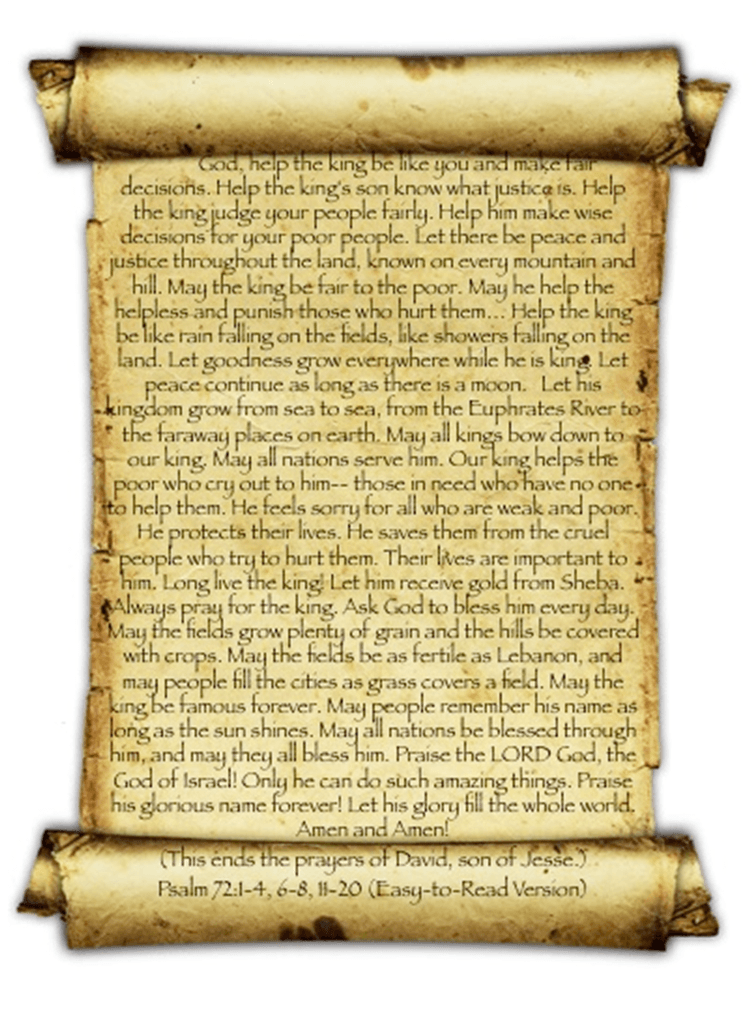 God, help the king be like you and make fair
decisions. Help the king's son know what justice is. Help
the king judge your people fairly. Help him make wise
decisions for your poor people. Let there be peace and
justice throughout the land, known on every mountain and
hill. May the king be fair to the poor. May he help the
helpless and punish those who hurt them... Help the king
be like rain falling on the fields, like showers falling on the
land. Let goodness grow everywhere while he is king. Let
peace continue as long as there is a moon. Let his
kingdom grow from sea to sea, from the Euphrates River to
the faraway places on earth. May all kings bow down to
our king. May all nations serve him. Our king helps the
poor who cry out to him-- those in need who have no one
to help them. He feels sorry for all who are weak and poor.
He protects their lives. He saves them from the cruel
people who try to hurt them. Their lives are important to
him. Long live the king! Let him receive gold from Sheba.
Always pray for the king. Ask God to bless him every day.
May the fields grow plenty of grain and the hills be covered
with crops. May the fields be as fertile as Lebanon, and
may people fill the cities as grass covers a field. May the
king be famous forever. May people remember his name as
long as the sun shines. May all nations be blessed through
him, and may they all bless him. Praise the LORD God, the
God of Israel! Only he can do such amazing things. Praise
his glorious name forever! Let his glory fill the whole world.
Amen and Amen!
(This ends the prayers of David, son of Jesse.)
Psalm 72:1-4, 6-8, 11-20 (Easy-to-Read Version)